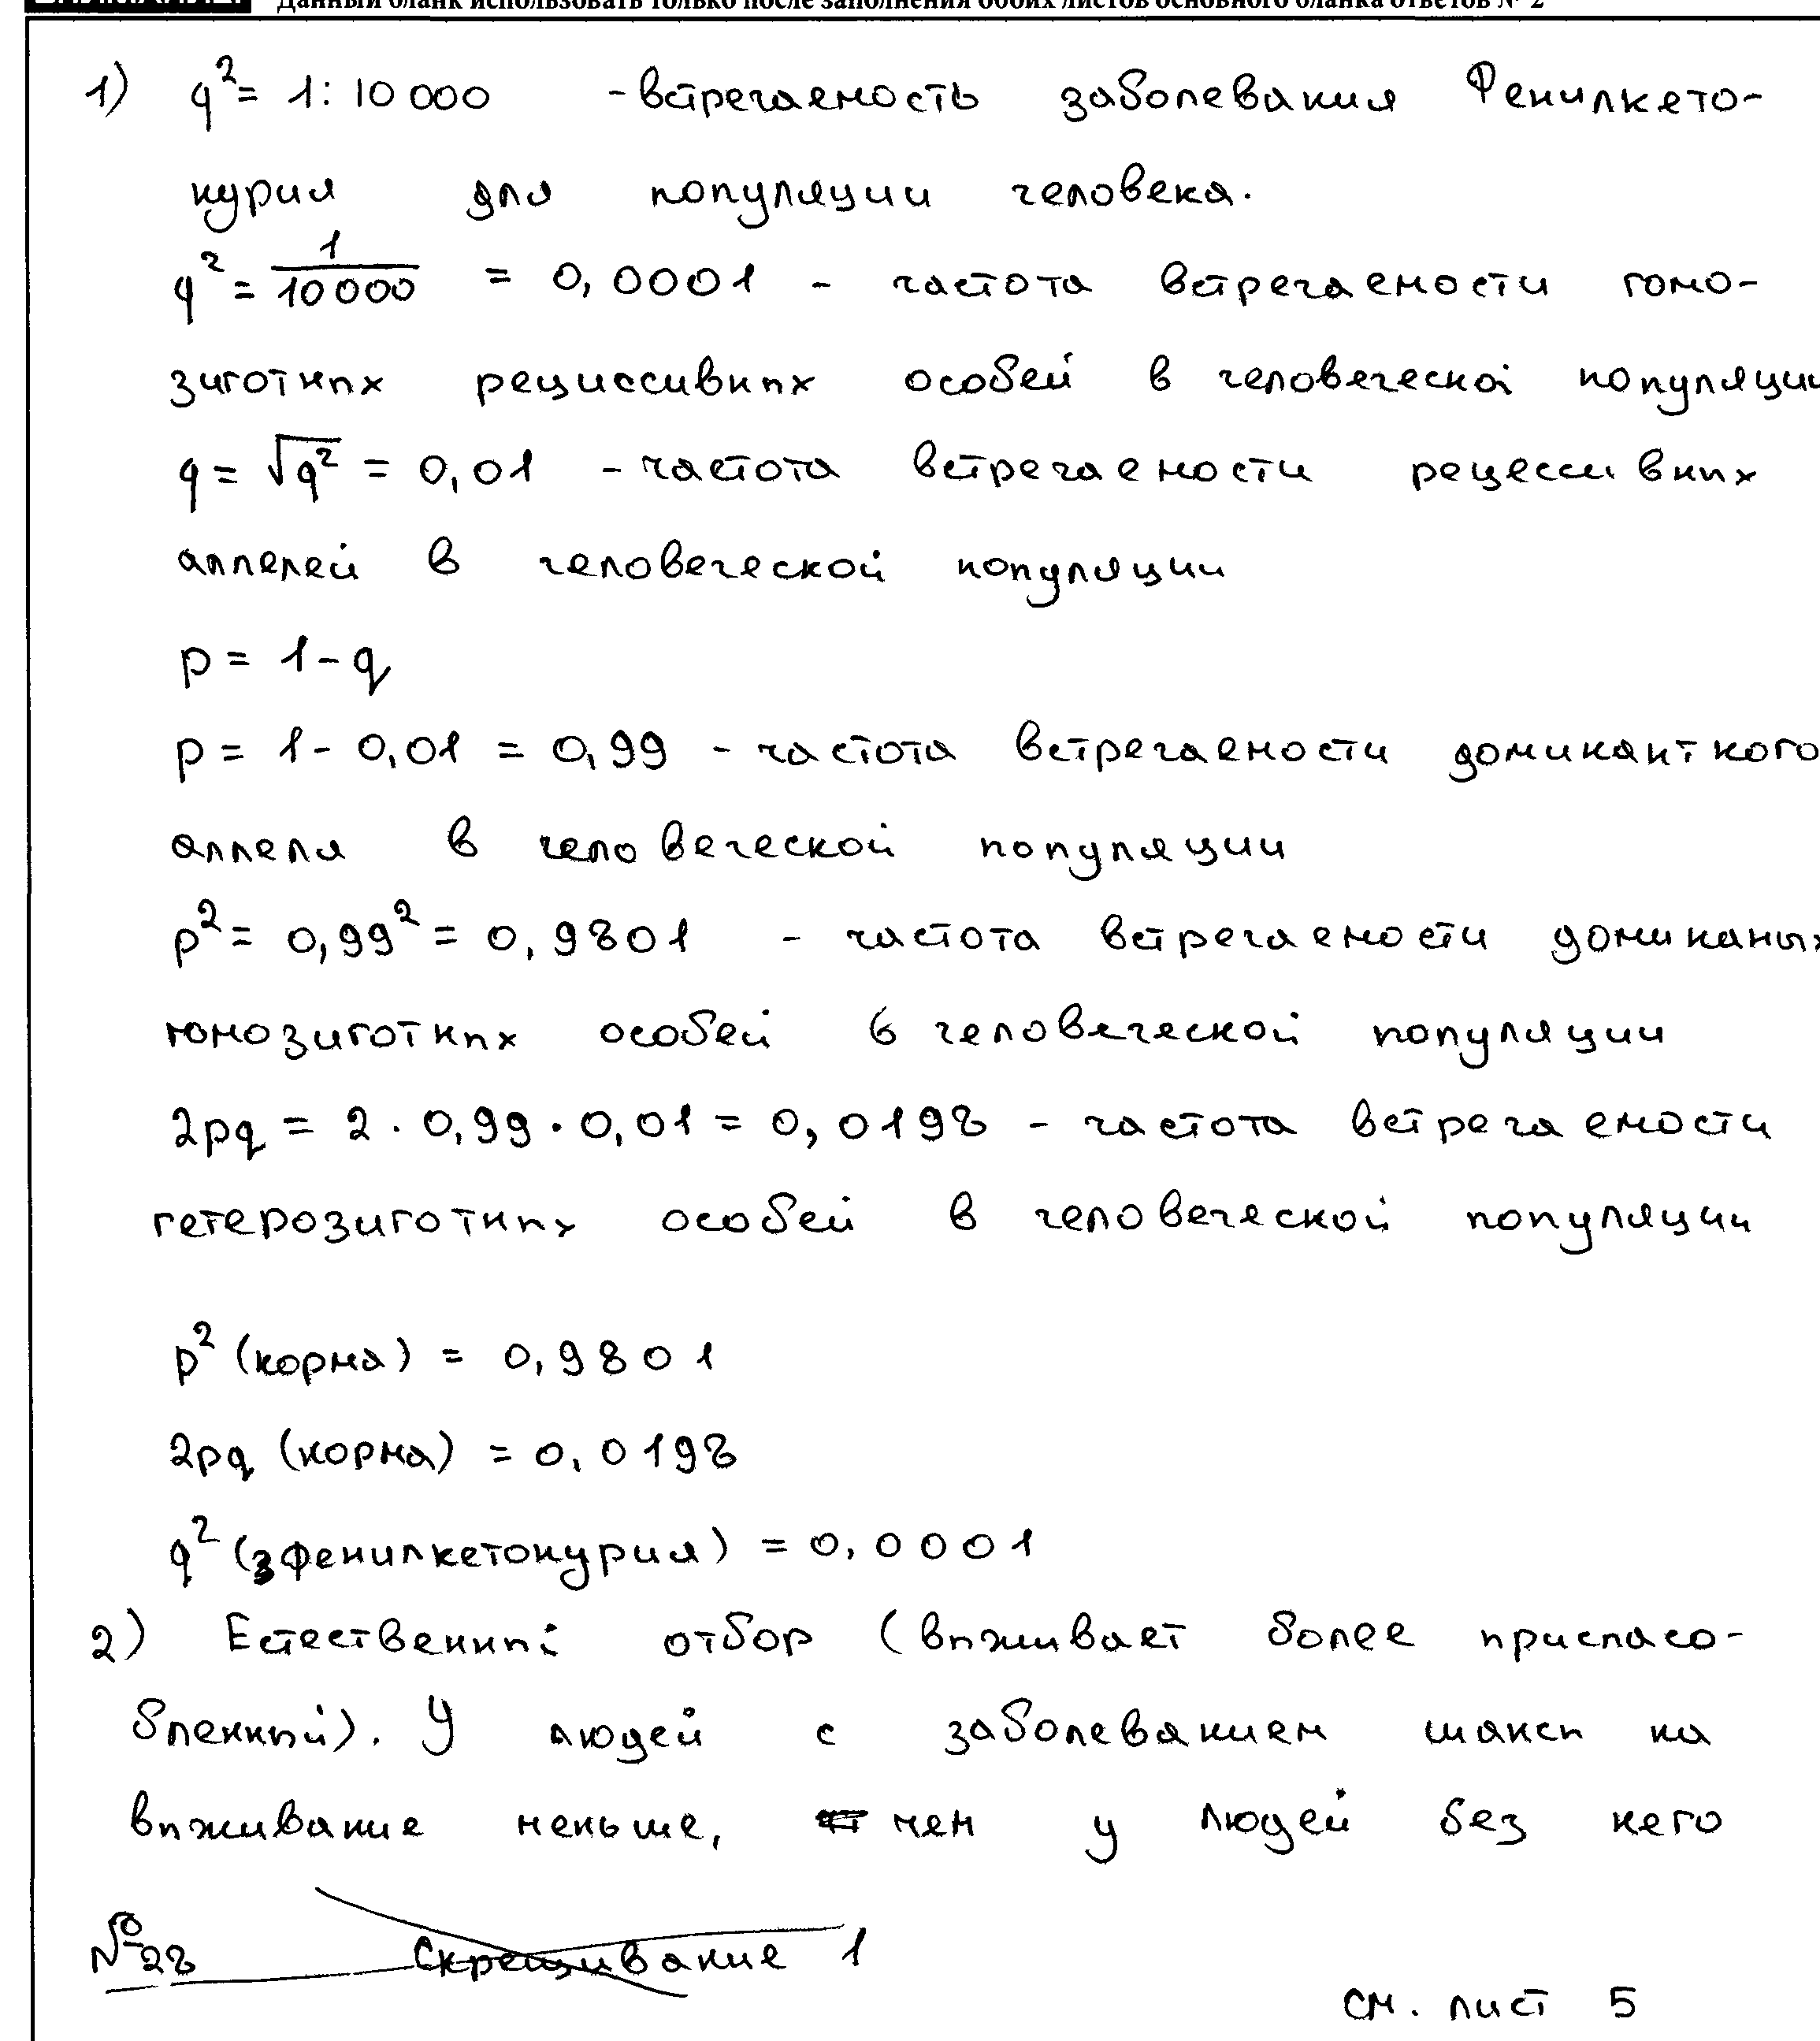 Данный бланк использовать только после заполнения обоих листов основного бланка ответов № 2
1) q² = 1 : 10 000 - встречаемость заболевания Фенилкето-
нурия для популяции человека.
q² = 1/10000 = 0,0001 - частота встречаемости гомо-
зиготных рециссивных особей в человеческой популяции
q = √q² = 0,01 - частота встречаемости рецессивных
аллелей в человеческой популяции
p = 1 - q
p = 1 - 0,01 = 0,99 - частота встречаемости доминантного
аллеля в человеческой популяции
p² = 0,99² = 0,9801 - частота встречаемости доминаных
гомозиготных особей в человеческой популяции
2pq = 2 · 0,99 · 0,01 = 0,0198 - частота встречаемости
гетерозиготных особей в человеческой популяции
p² (норма) = 0,9801
2pq (норма) = 0,0198
q² (фенилкетонурия) = 0,0001
2) Естественный отбор (выживает более приспасо-
бленный). У людей с заболеванием шансы на
выживание меньше, чем у людей без него
№28 Скрещивание 1
см. лист 5